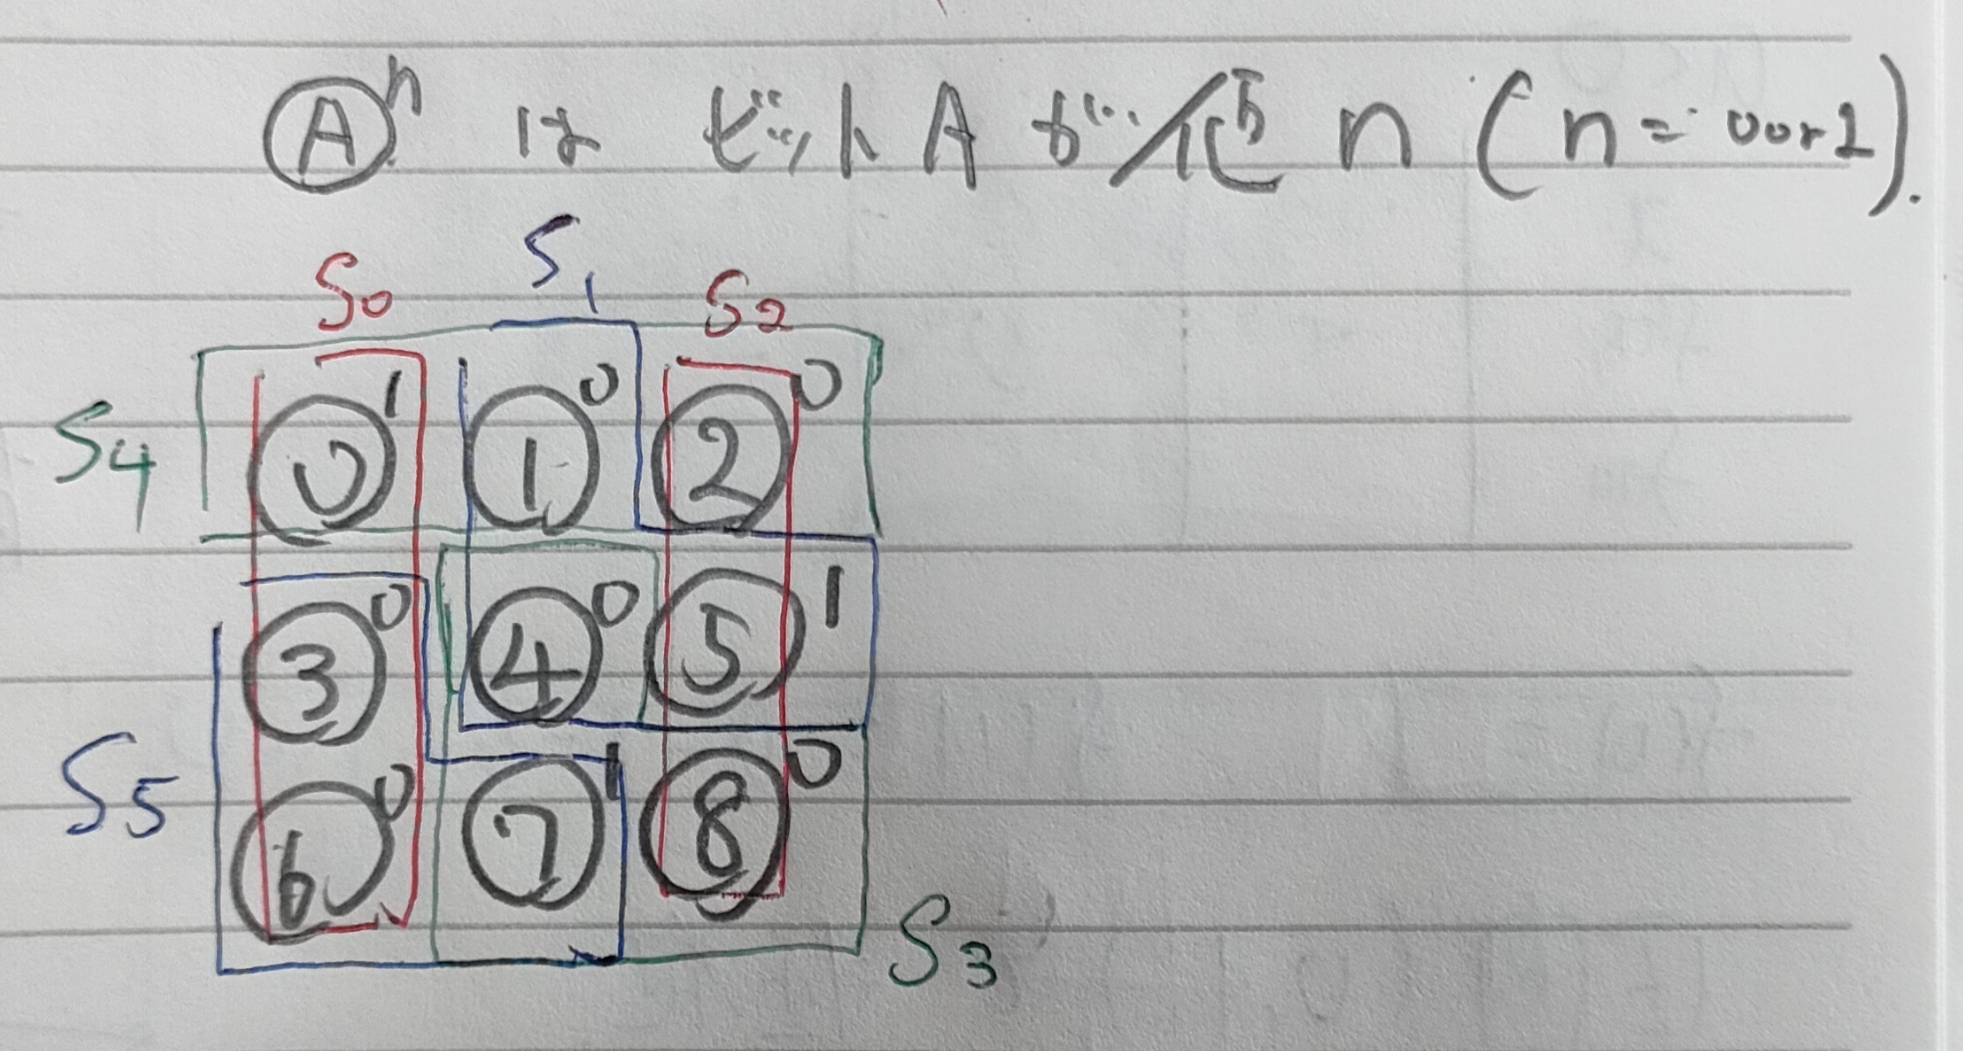 Ⓐⁿ は ビット A が 値 n (n = 0 or 1).
S₁
S₀ S₂
S₄ ⓪¹ ①⁰ ②⁰
③⁰ ④⁰ ⑤¹
S₅ ⑥⁰ ⑦¹ ⑧⁰
S₃